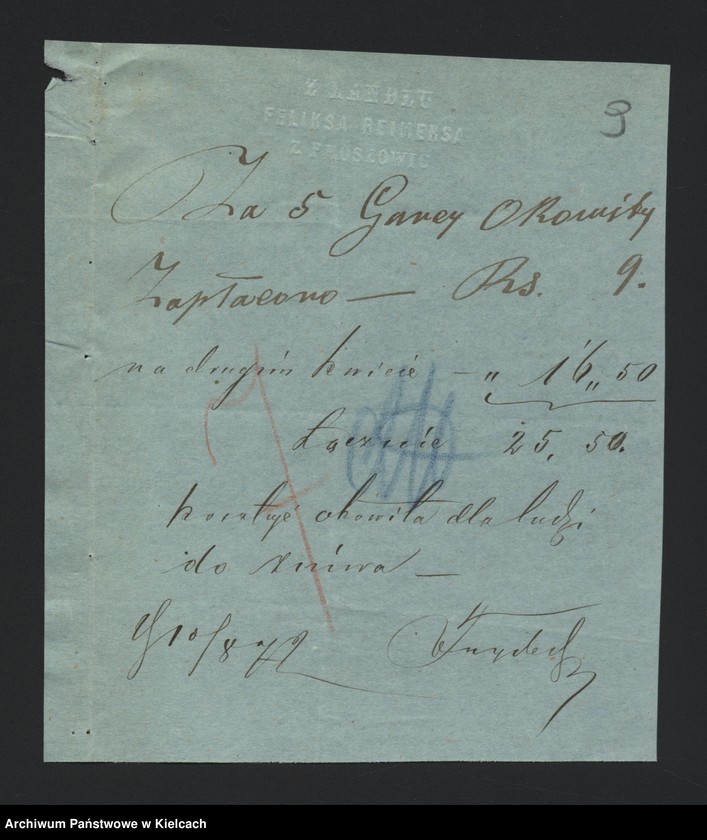 Z HANDLU
FELIKSA REIMERSA
Z PROSZOWIC
9
Za 5 Garcy Okowity
Zapłacono — Rs. 9.
na drugim kwicie — „ 16„50
Łącznie 25, 50.
okowita dla ludzi
do żniwa —
10/8 72
Archiwum Państwowe w Kielcach